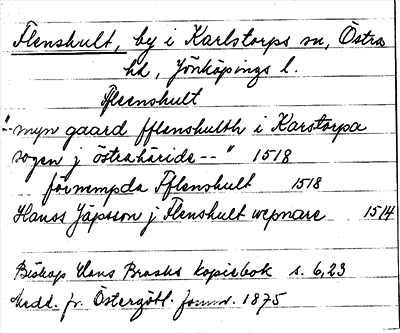 Flenshult, by i Karlstorps sn, Östra
hd, Jönköpings l.
Ffleenshult
"-- myn gaard fflenshulth i Karstorpa
sogen j östrahäride--" 1518
förnempda Fflenshult 1518
Hanss Jäpsson j Flenshult wepnare 1514
Biskop Hans Brasks kopiebok s. 6,23
Medd. fr. Östergötl. fornm. 1875